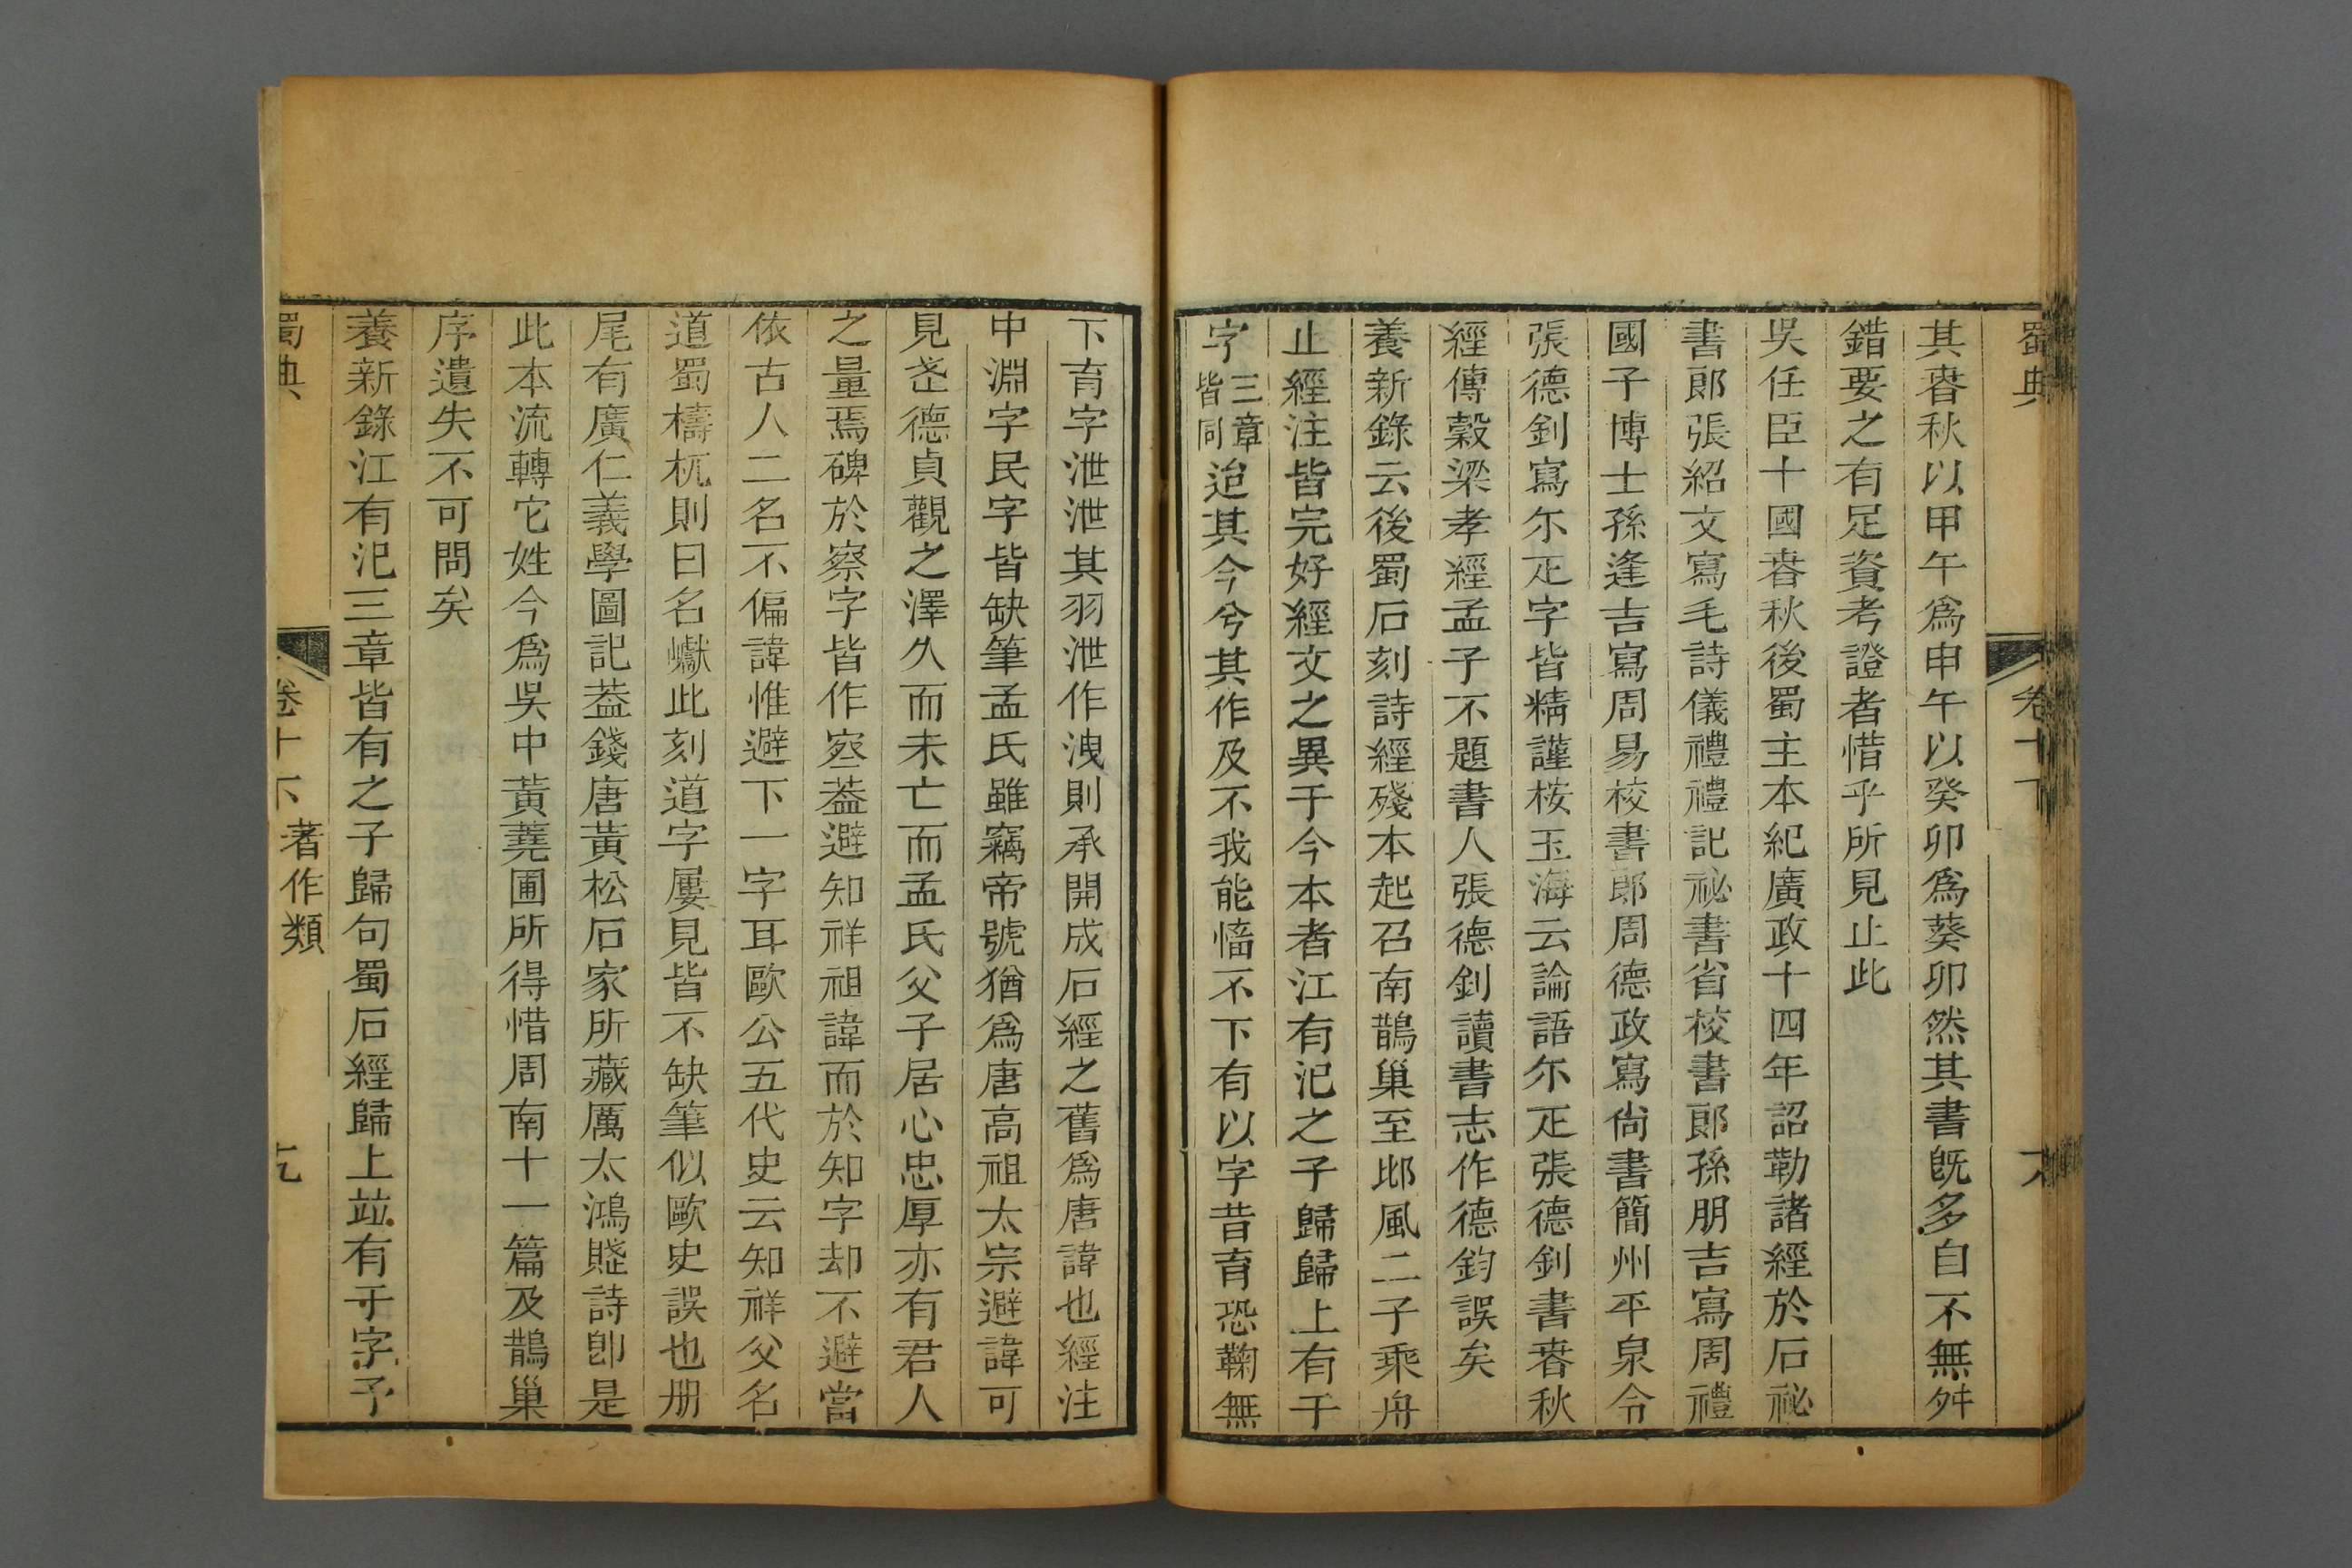 蜀典
卷十下
其春秋以甲午爲申午以癸卯爲葵卯然其書既多自不無舛
錯要之有足資考證者惜乎所見止此
吳任臣十國春秋後蜀主本紀廣政十四年詔勒諸經於石祕
書郎張紹文寫毛詩儀禮禮記祕書省校書郎孫朋吉寫周禮
國子博士孫逢吉寫周易校書郎周德政寫尙書簡州平泉令
張德釗寫尒疋字皆精謹桉玉海云論語尒疋張德釗書春秋
經傳穀梁孝經孟子不題書人張德釗讀書志作德鈞誤矣
養新錄云後蜀石刻詩經殘本起召南鵲巢至邶風二子乘舟
止經注皆完好經文之異于今本者江有汜之子歸歸上有于
字三章皆同迨其今兮其作及不我能慉不下有以字昔育恐鞠無
下育字泄泄其羽泄作洩則承開成石經之舊爲唐諱也經注
中淵字民字皆缺筆孟氏雖竊帝號猶爲唐高祖太宗避諱可
見武德貞觀之澤久而未亡而孟氏父子居心忠厚亦有君人
之量焉碑於察字皆作𥧌葢避知祥祖諱而於知字却不避當
依古人二名不偏諱惟避下一字耳歐公五代史云知祥父名
道蜀檮杌則曰名巘此刻道字屢見皆不缺筆似歐史誤也册
尾有廣仁義學圖記葢錢唐黃松石家所藏厲太鴻賦詩卽是
此本流轉它姓今爲吳中黃蕘圃所得惜周南十一篇及鵲巢
序遺失不可問矣
養新錄江有汜三章皆有之子歸句蜀石經歸上竝有于字予
蜀典
卷十下 著作類
九